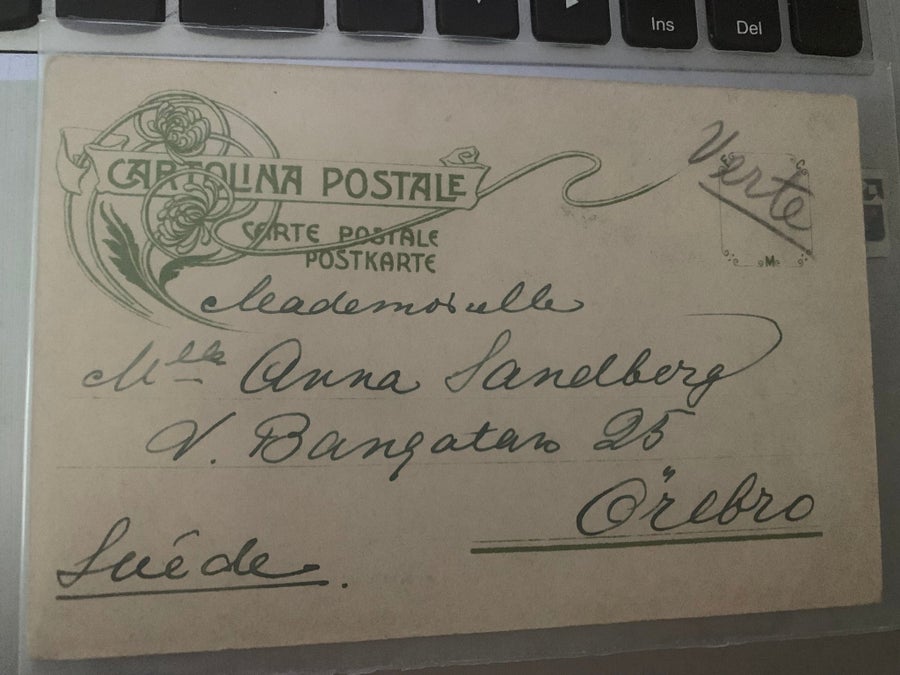 Ins
Del
CARTOLINA POSTALE
CARTE POSTALE
POSTKARTE
Verte
Mademoiselle
Mlle Anna Sandberg
V. Bangatan 25
Örebro
Suéde.